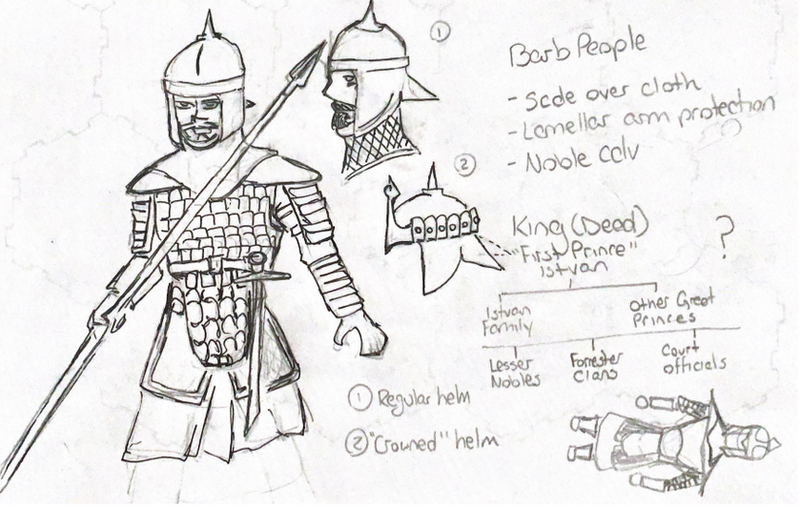 ①
Barb People
- Scale over cloth
- Lamellar arm protection
- Noble calv
②
King (Dead)
"First Prince"
Istvan
?
Istvan
Family
Other Great
Princes
Lesser
Nobles
Forrester
Clans
Court
officials
① Regular helm
② "Crowned" helm